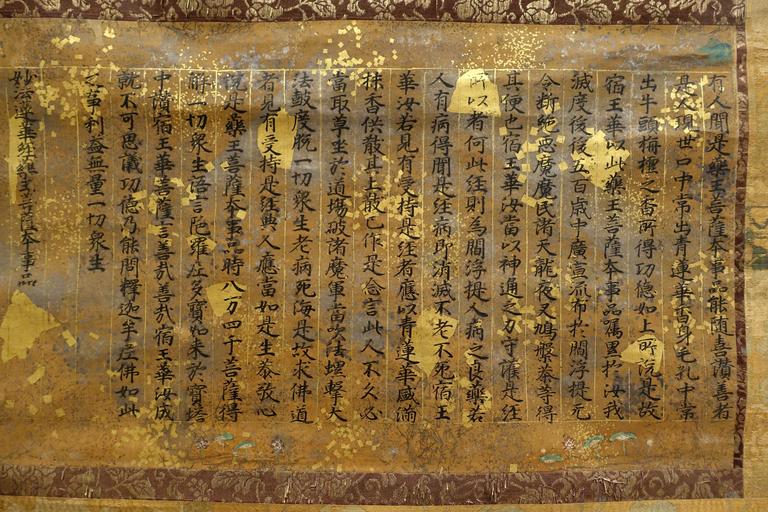 有人聞是藥王菩薩本事品能随喜讃善者
是人現世口中常出青蓮華香身毛孔中常
出牛頭栴檀之香所得功徳如上所説是故
宿王華以此藥王菩薩本事品囑累於汝我
滅度後後五百歳中廣宣流布於閻浮提无
令断絶惡魔魔民諸天龍夜叉鳩槃荼等得
其便也宿王華汝當以神通之力守護是経
所以者何此経則為閻浮提人病之良藥若
人有病得聞是経病即消滅不老不死宿王
華汝若見有受持是経者應以青蓮華盛滿
抹香供散其上散已作是念言此人不久必
當取草坐於道場破諸魔軍當吹法螺撃大
法皷度脱一切衆生老病死海是故求佛道
者見有受持是経典人應當如是生恭敬心
説是藥王菩薩本事品時八万四千菩薩得
解一切衆生語言陀羅尼多寶如来於寶塔
中讃宿王華菩薩言善哉善哉宿王華汝成
就不可思議功徳乃能問釋迦牟尼佛如此
之事利益無量一切衆生
妙法蓮華経藥王菩薩本事品